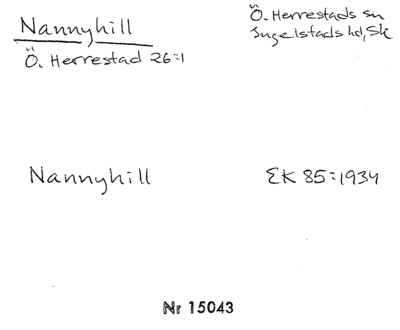 Nannyhill
Ö. Herrestad 26:1
Ö. Herrestads sn
Ingelstads hd, Sk
Nannyhill
EK 85:1934
Nr 15043